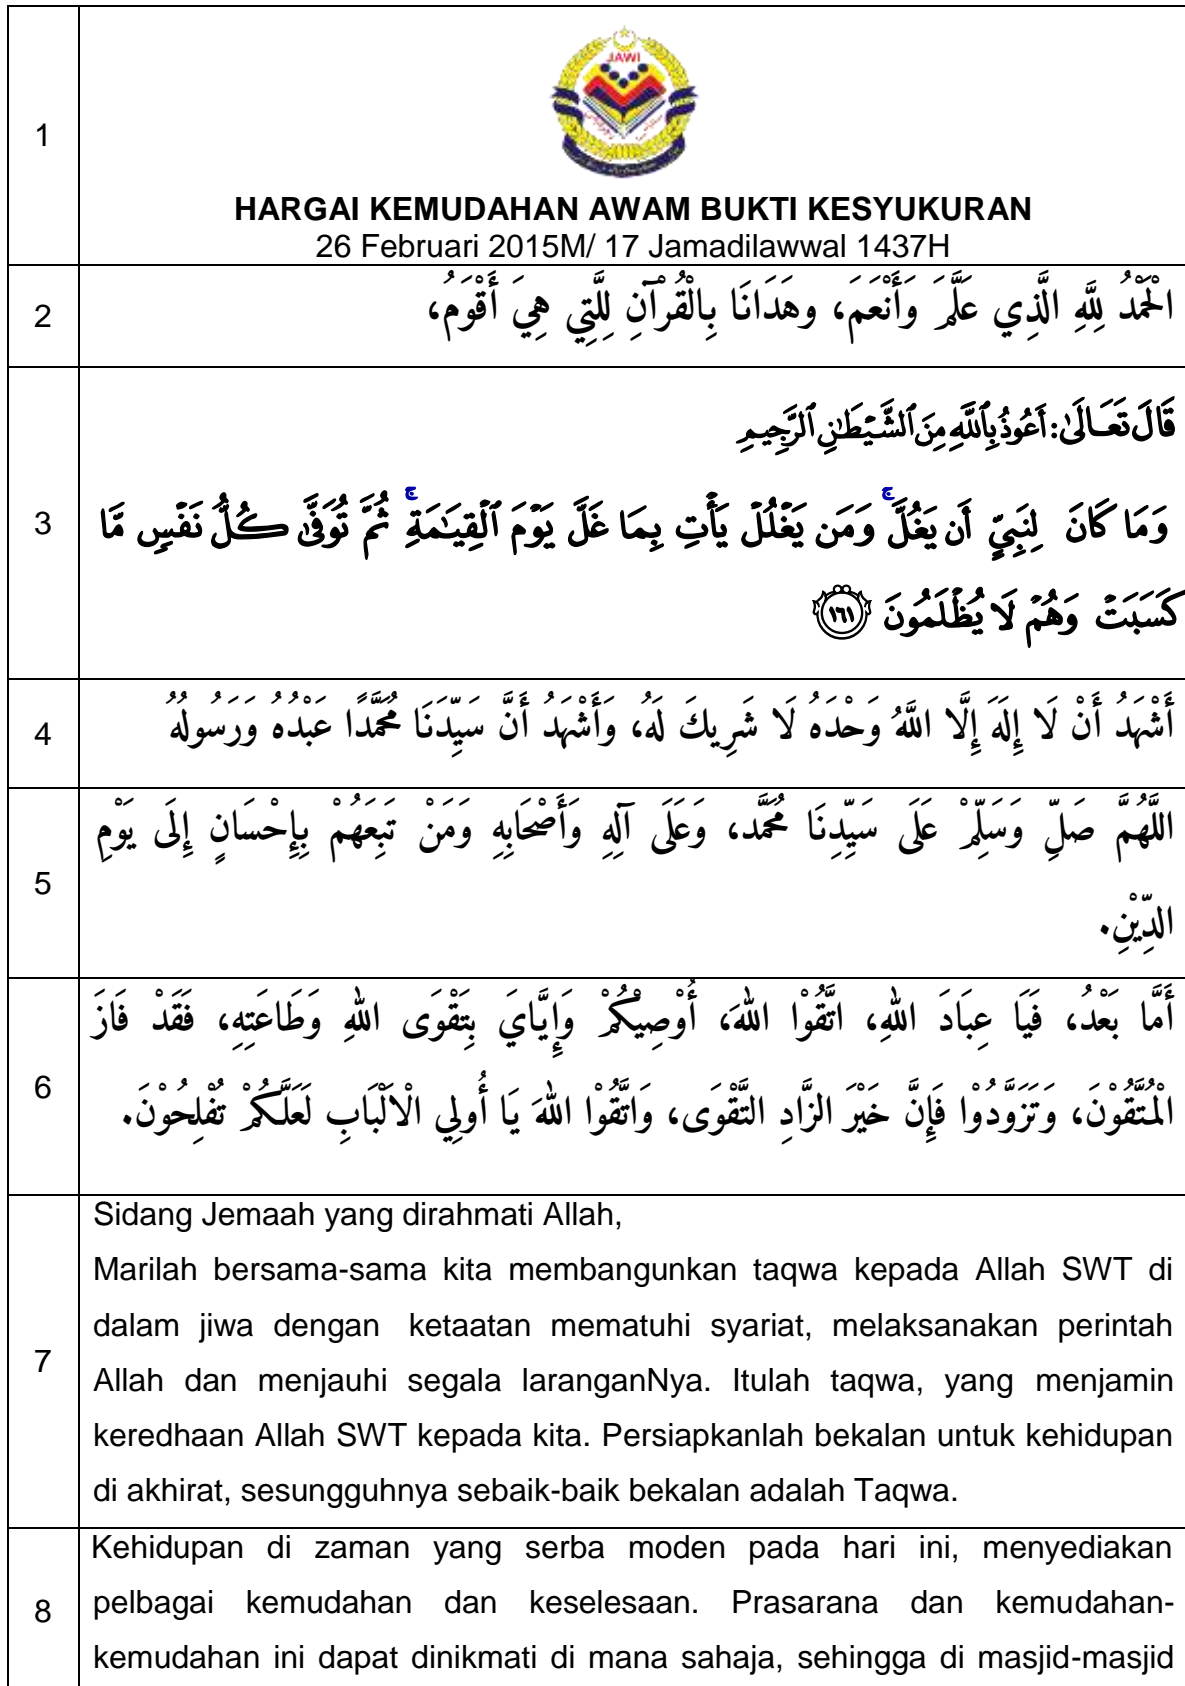 1
JAWI
HARGAI KEMUDAHAN AWAM BUKTI KESYUKURAN
26 Februari 2015M/ 17 Jamadilawwal 1437H
2
الْحَمْدُ لِلَّهِ الَّذِي عَلَّمَ وَأَنْعَمَ، وهَدَانَا بِالْقُرْآنِ لِلَّتِي هِيَ أَقْوَمُ،
3
قَالَ تَعَالَىٰ: أَعُوذُ بِٱللَّهِ مِنَ ٱلشَّيْطَٰنِ ٱلرَّجِيمِ
وَمَا كَانَ لِنَبِيٍّ أَن يَغُلَّ ۚ وَمَن يَغْلُلْ يَأْتِ بِمَا غَلَّ يَوْمَ ٱلْقِيَٰمَةِ ۚ ثُمَّ تُوَفَّىٰ كُلُّ نَفْسٍ مَّا
كَسَبَتْ وَهُمْ لَا يُظْلَمُونَ ١٦١
4
أَشْهَدُ أَنْ لَا إِلَهَ إِلَّا اللَّهُ وَحْدَهُ لَا شَرِيكَ لَهُ، وَأَشْهَدُ أَنَّ سَيِّدَنَا مُحَمَّدًا عَبْدُهُ وَرَسُولُهُ
5
اللَّهُمَّ صَلِّ وَسَلِّمْ عَلَى سَيِّدِنَا مُحَمَّد، وَعَلَى آلِهِ وَأَصْحَابِهِ وَمَنْ تَبِعَهُمْ بِإِحْسَانٍ إِلَى يَوْمِ
الدِّيْنِ.
6
أَمَّا بَعْدُ، فَيَا عِبَادَ اللهِ، اتَّقُوْا اللهَ، أُوْصِيْكُمْ وَإِيَّايَ بِتَقْوَى اللهِ وَطَاعَتِهِ، فَقَدْ فَازَ
الْمُتَّقُوْنَ، وَتَزَوَّدُوْا فَإِنَّ خَيْرَ الزَّادِ التَّقْوَى، وَاتَّقُوْا اللهَ يَا أُولِي الْالْبَابِ لَعَلَّكُمْ تُفْلِحُوْنَ.
7
Sidang Jemaah yang dirahmati Allah,
Marilah bersama-sama kita membangunkan taqwa kepada Allah SWT di
dalam jiwa dengan ketaatan mematuhi syariat, melaksanakan perintah
Allah dan menjauhi segala laranganNya. Itulah taqwa, yang menjamin
keredhaan Allah SWT kepada kita. Persiapkanlah bekalan untuk kehidupan
di akhirat, sesungguhnya sebaik-baik bekalan adalah Taqwa.
8
Kehidupan di zaman yang serba moden pada hari ini, menyediakan
pelbagai kemudahan dan keselesaan. Prasarana dan kemudahan-
kemudahan ini dapat dinikmati di mana sahaja, sehingga di masjid-masjid